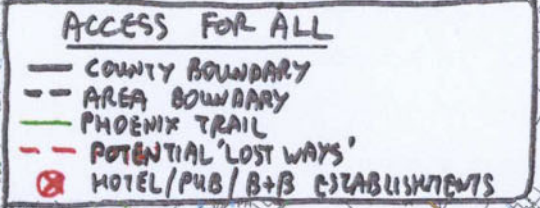 ACCESS FOR ALL
COUNTY BOUNDARY
AREA BOUNDARY
PHOENIX TRAIL
POTENTIAL 'LOST WAYS'
HOTEL/PUB/B+B ESTABLISHMENTS